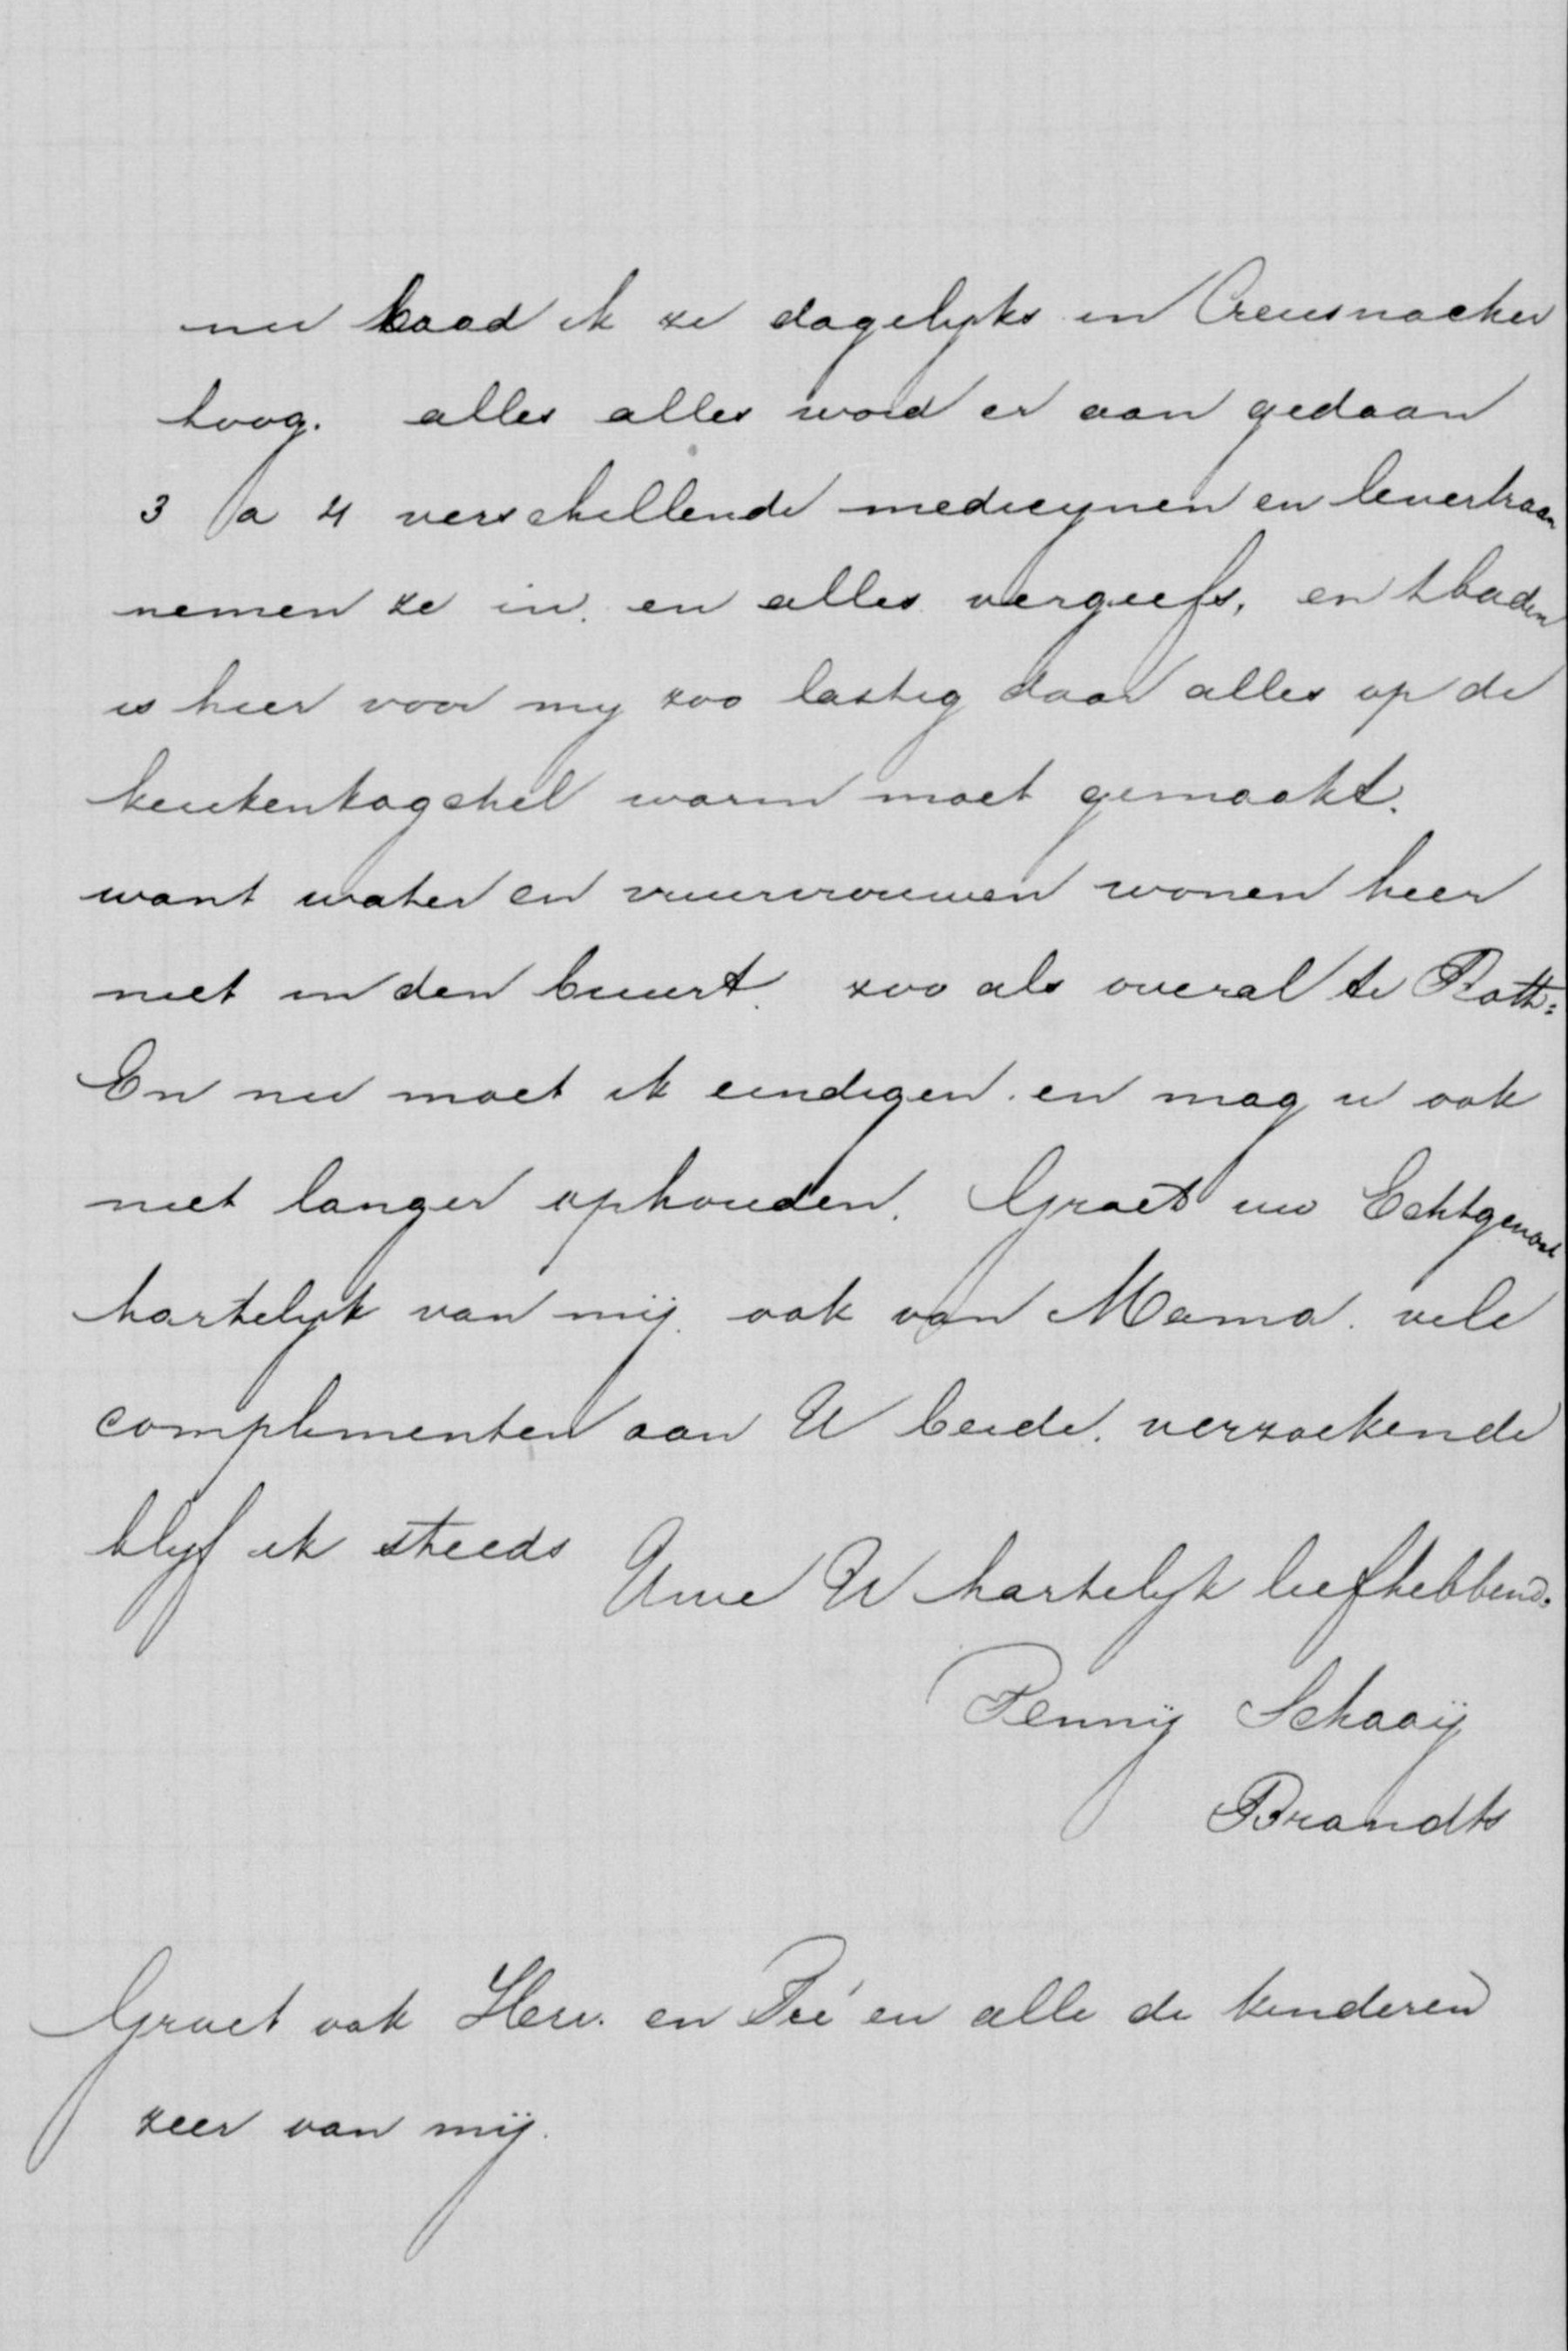 nu baad ik ze dagelyks in Creusnacher
loog. alles alles word er aan gedaan
3 a 4 verschillende medicynen en levertraan
nemen ze in. en alles vergeefs, en t baden
is hier voor my zoo lastig daar alles op de
keukenkagchel warm moet gemaakt.
want water en vuurvrouwen wonen hier
niet in den buurt. zoo als overal te Rott:
En nu moet ik eindigen. en mag u ook
niet langer ophouden. Groet uw Echtgenoot
hartelyk van mij. ook van Mama. vele
complimenten aan U beide. verzoekende
blyf ik steeds
Uwe U hartelyk liefhebbend.
Pennij Schaaij
Brandts
Groet ook Herr. en Pré en alle de kinderen
zeer van mij.